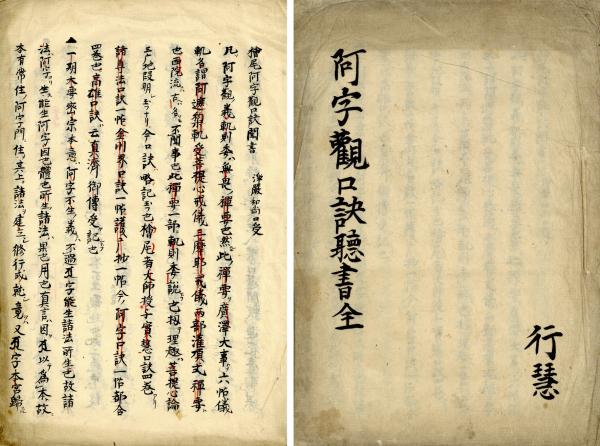 阿字觀口訣聽書全
行慧
檜尾阿字觀口訣聞書
淨嚴和尚口受
凡阿字觀儀軌則委無是禪要也然此禪要廣澤大事六帖儀
軌各謂阿遮梨軌受菩提心戒儀三摩耶戒儀兩部灌頂式禪要
也西院流不聞事也此禪要一部軌則委說也扨理趣菩提心論
三十七段明今口訣略記也檜尾者大師授予實慧口訣四卷
諸尊法口訣一帖金剛界口訣一帖護抄一帖今阿字口訣一帖都合
四卷也高雄口訣云真濟御傳受記也
一期大要密宗本意阿字不生義不過阿字能生諸法所生也故諸
法阿字生能生阿字因也體也所生諸法果也用也真言因以為本故
本有常住阿字門住其上諸法建立修行成就竟又阿字本宮歸